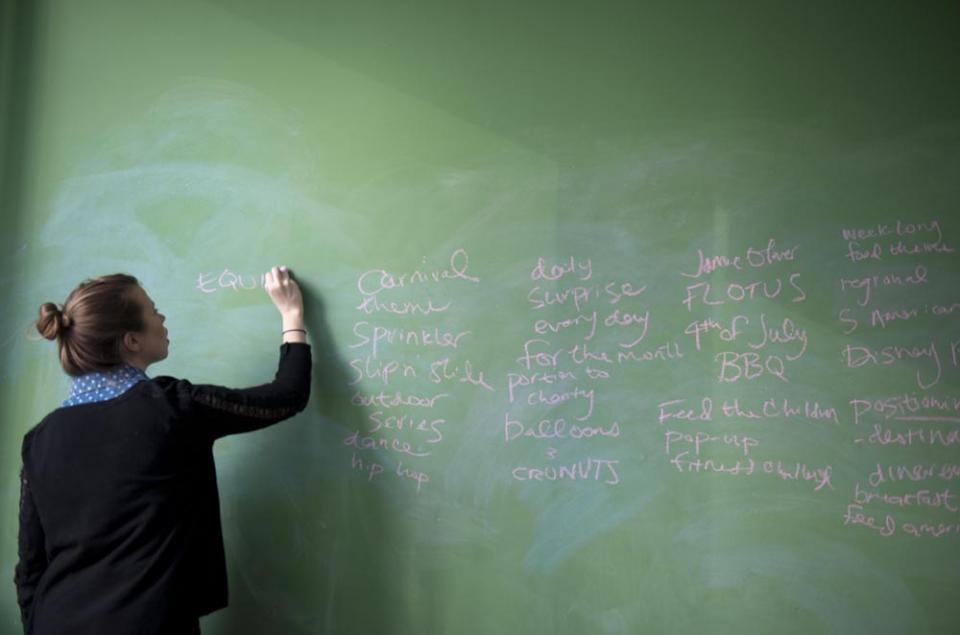 EQUI
Carnival
theme
Sprinkler
Slip n Slide
outdoor
series
dance
hip hop
daily
surprise
every day
for the month
portion to
charity
balloons
&
CRONUTS
Jamie Oliver
FLOTUS
4th of July
BBQ
Feed the Children
pop-up
fitness challenge
week long
food themes
regional
S American
Disney
positionin
-destina
diner
breakfast
feed ameri